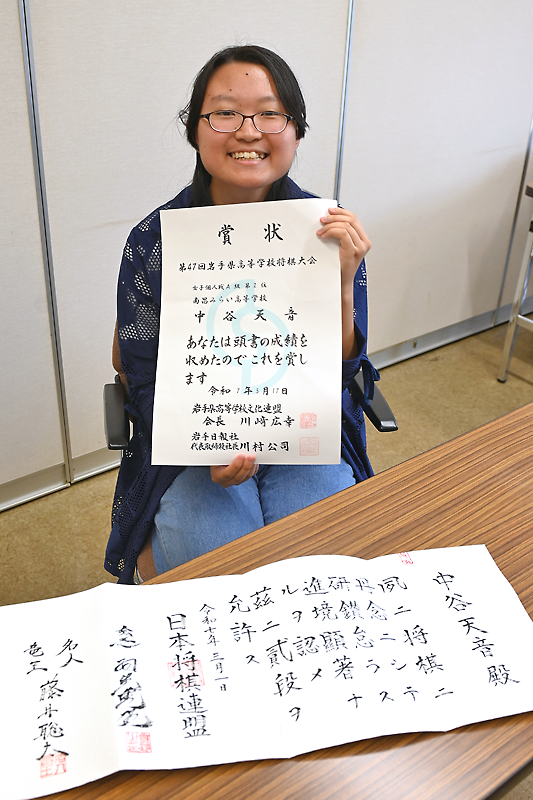 賞状
第47回岩手県高等学校将棋大会
女子個人戦A級第2位
南昌みらい高等学校
中谷天音
あなたは頭書の成績を
収めたのでこれを賞し
ます
岩手県高等学校文化連盟
会長 川崎広幸
岩手日報社
代表取締役社長 川村公司
中谷天音殿
夙ニ将棋ニ
丹念ニシテ
研鑽怠ラス
進境顕著ナ
ルヲ認メ
茲ニ貳段ヲ
允許ス
日本将棋連盟
名人
竜王 藤井聡太